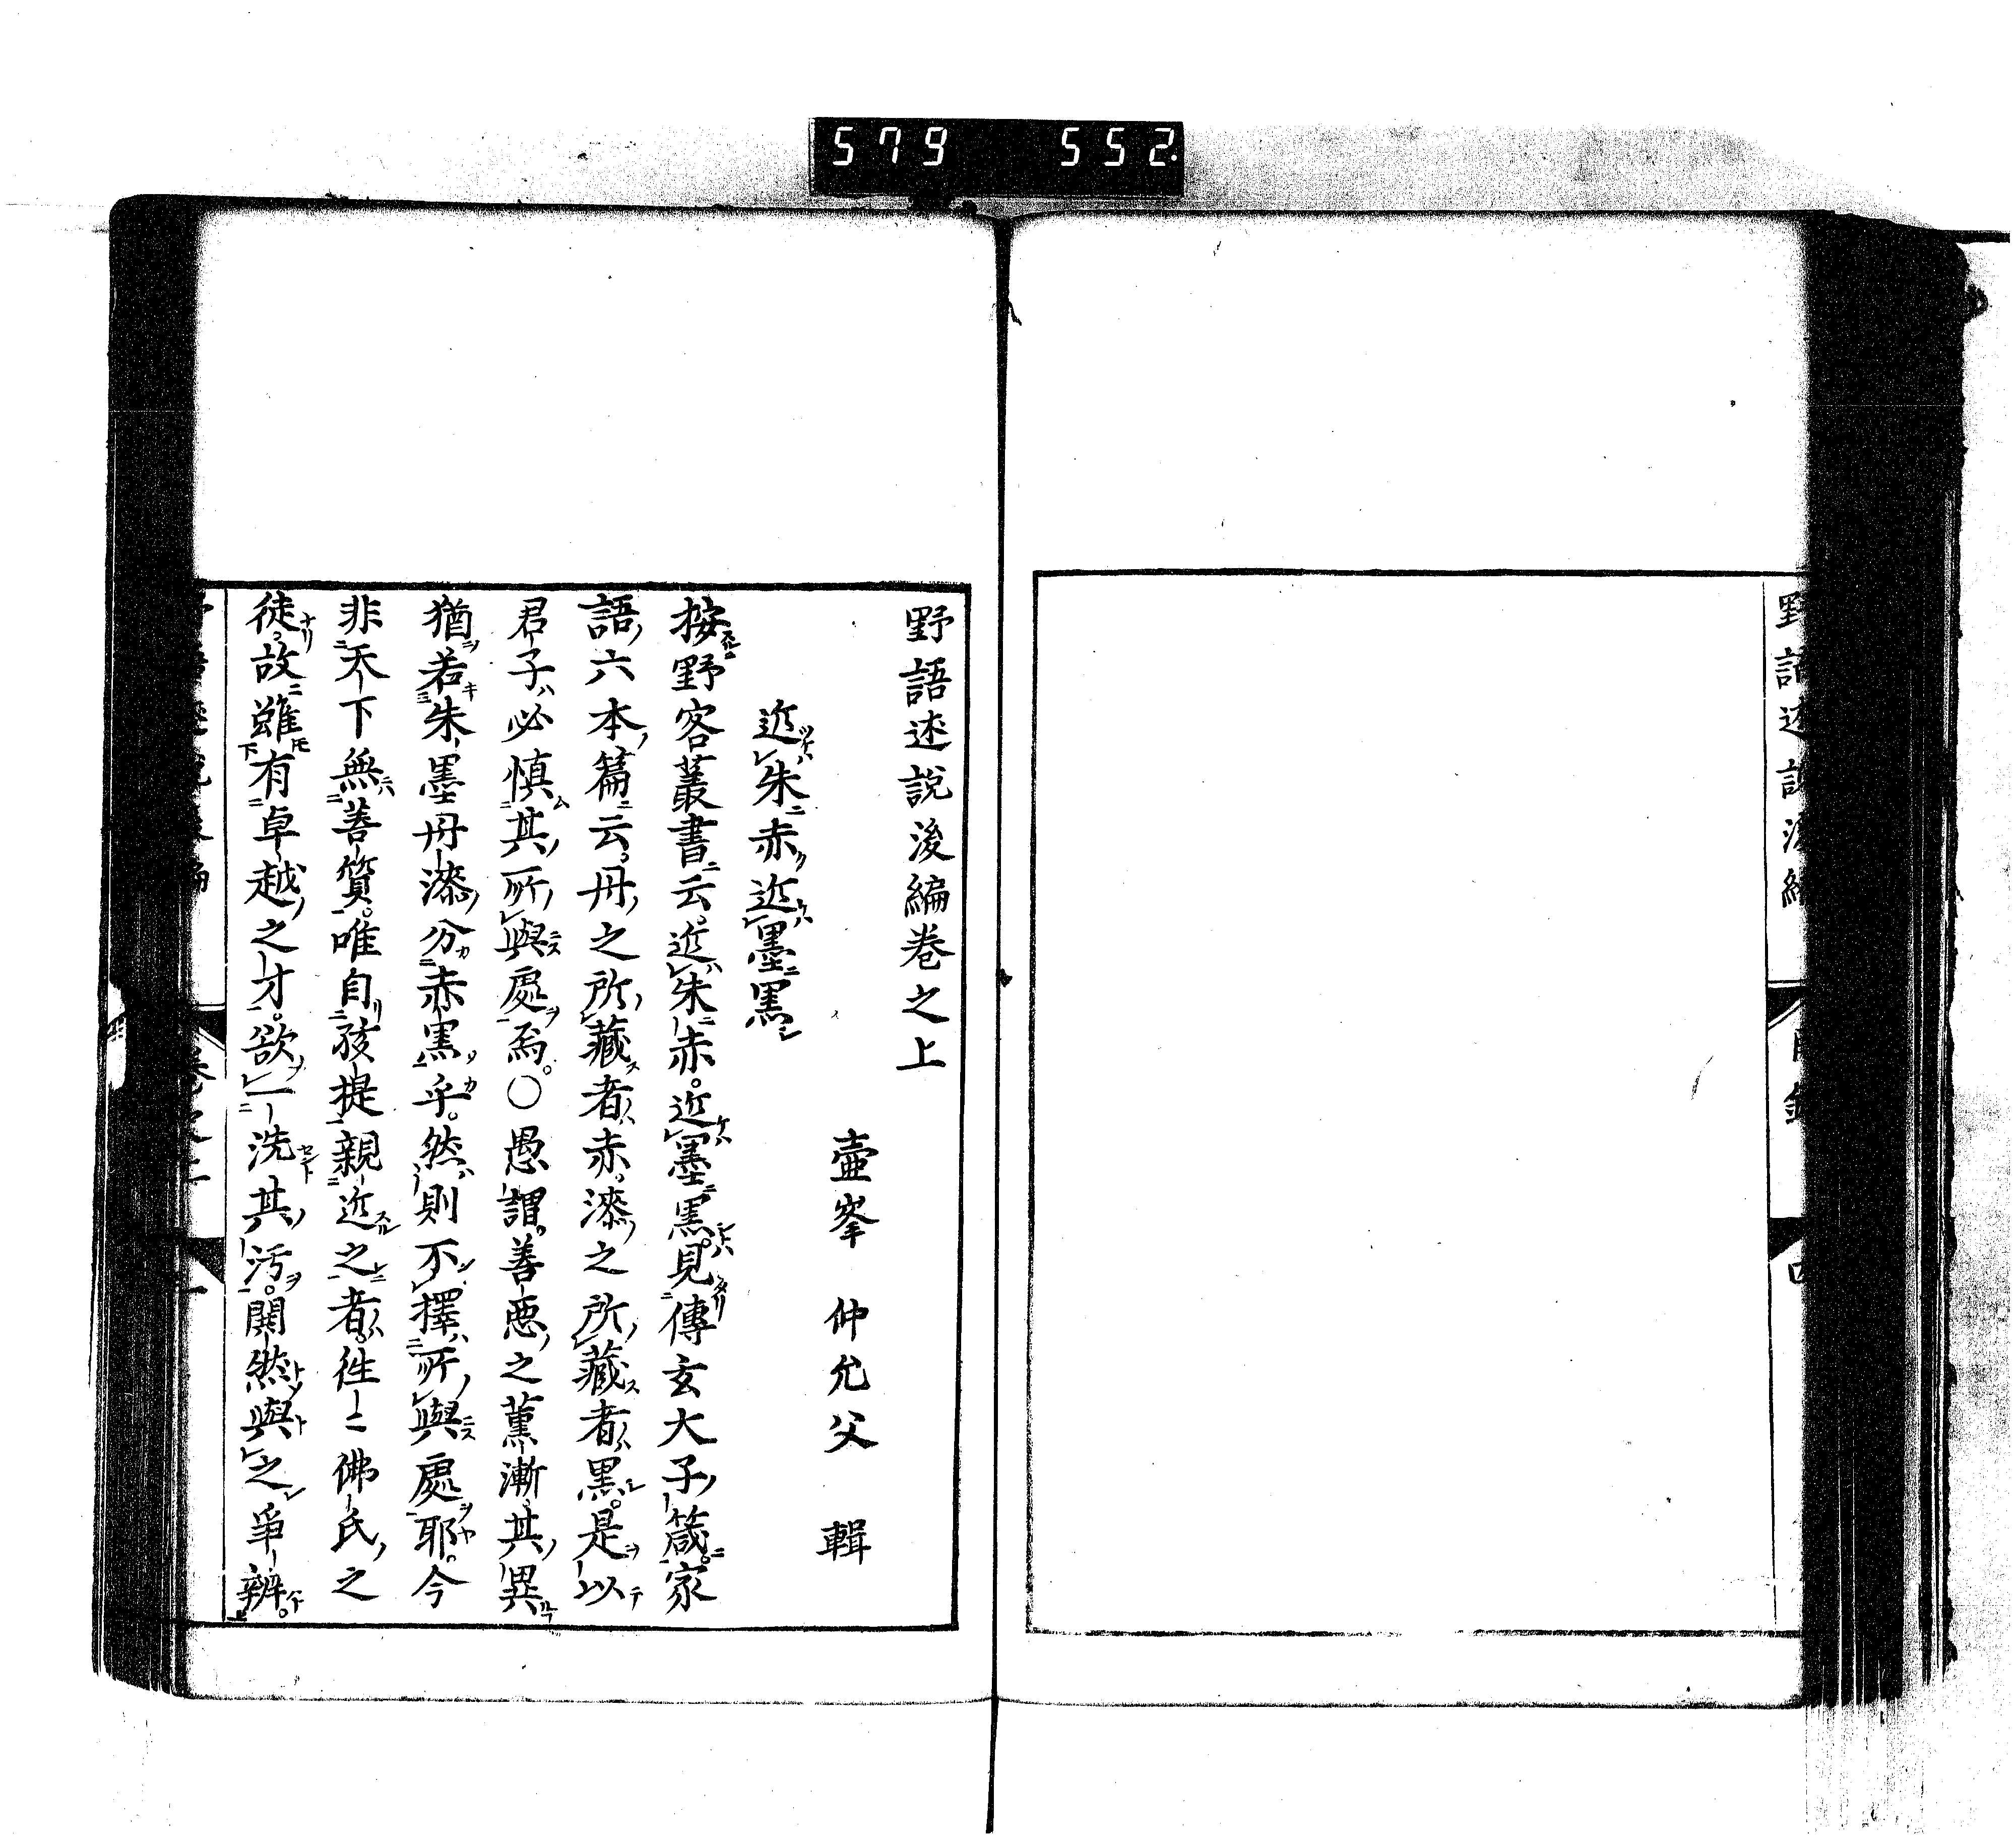 579 552
野語述説後編
目録
四
野語述説後編巻之上
壺峯 仲允父 輯
近朱赤近墨黒
按野客叢書云。近朱赤。近墨黒。見傳玄大子箴。家
語六本篇云。丹之所藏者赤。漆之所藏者黒。是以
君子必慎其所與處焉。○愚謂。善惡之薫漸其異
猶若朱墨丹漆分赤黒乎。然則不擇所與處耶。今
非天下無善質。唯自孩提親近之者。徃〻佛氏之
徒。故雖有卓越之才。欲一洗其汚。鬨然與之爭辨。